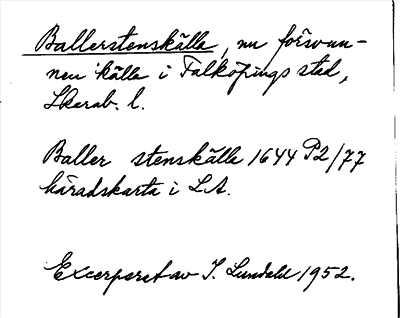 Ballerstenskälla, nu försvun-
nen källa i Falköpings stad,
Skarab. l.
Baller stenskälla 1644 P2/77
häradskarta i LA.
Excerperat av I. Lundahl 1952.